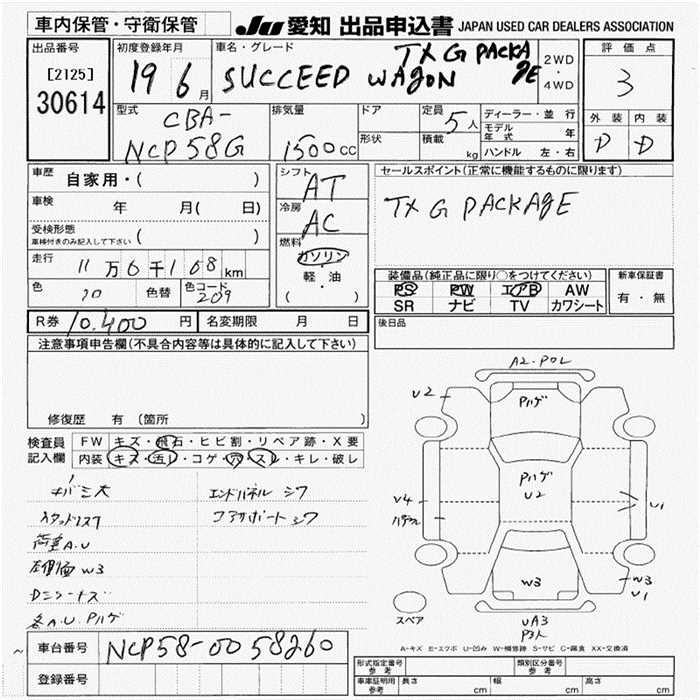 車内保管・守衛保管
JU 愛知 出品申込書 JAPAN USED CAR DEALERS ASSOCIATION
出品番号
[2125]
30614
初度登録年月
19 6月
車名・グレード
TX G PACKAGE
SUCCEED WAGON
2WD
・
4WD
評価点
3
外装 内装
D D
型式
CBA-
NCP58G
排気量
1500cc
ドア
形状
定員 5人
積載 kg
ディーラー・並行
モデル年式 年
ハンドル 左・右
車歴 自家用・( )
車検 年 月( 日)
受検形態
車検付きのみ記入して下さい ( )
走行 11万6千168km
色 色替 色コード 209
R券 10.400円 名変期限 月 日
シフト AT
冷房 AC
燃料
ガソリン
軽・油
( ・ )
セールスポイント(正常に機能するものに限ります)
TX G PACKAGE
装備品(純正品に限り○をつけてください)
PS PW エアB AW
SR ナビ TV カワシート
新車保証書
有・無
後日品
注意事項申告欄(不具合内容等は具体的に記入して下さい)
修復歴 有(箇所 )
検査員
記入欄
FW キズ・飛石・ヒビ割・リペア跡・X要
内装 キズ・汚レ・コゲ・穴・スレ・キレ・破レ
エンドパネル シワ
コアサポート シワ
荷室A.U
W3
各A.U.Pハゲ
A2.POL
U2
Pハゲ
Pハゲ
U2
V4
U1
W3
W3
U1
UA3
スペア
A-キズ E-エクボ U-凹み W-補修跡 S-サビ C-腐食 XX-交換済
車台番号 NCP58-0058260
登録番号
形式指定番号
参考
類別区分番号
参考
車庫証明用
参考
長さ cm 幅 cm 高さ cm